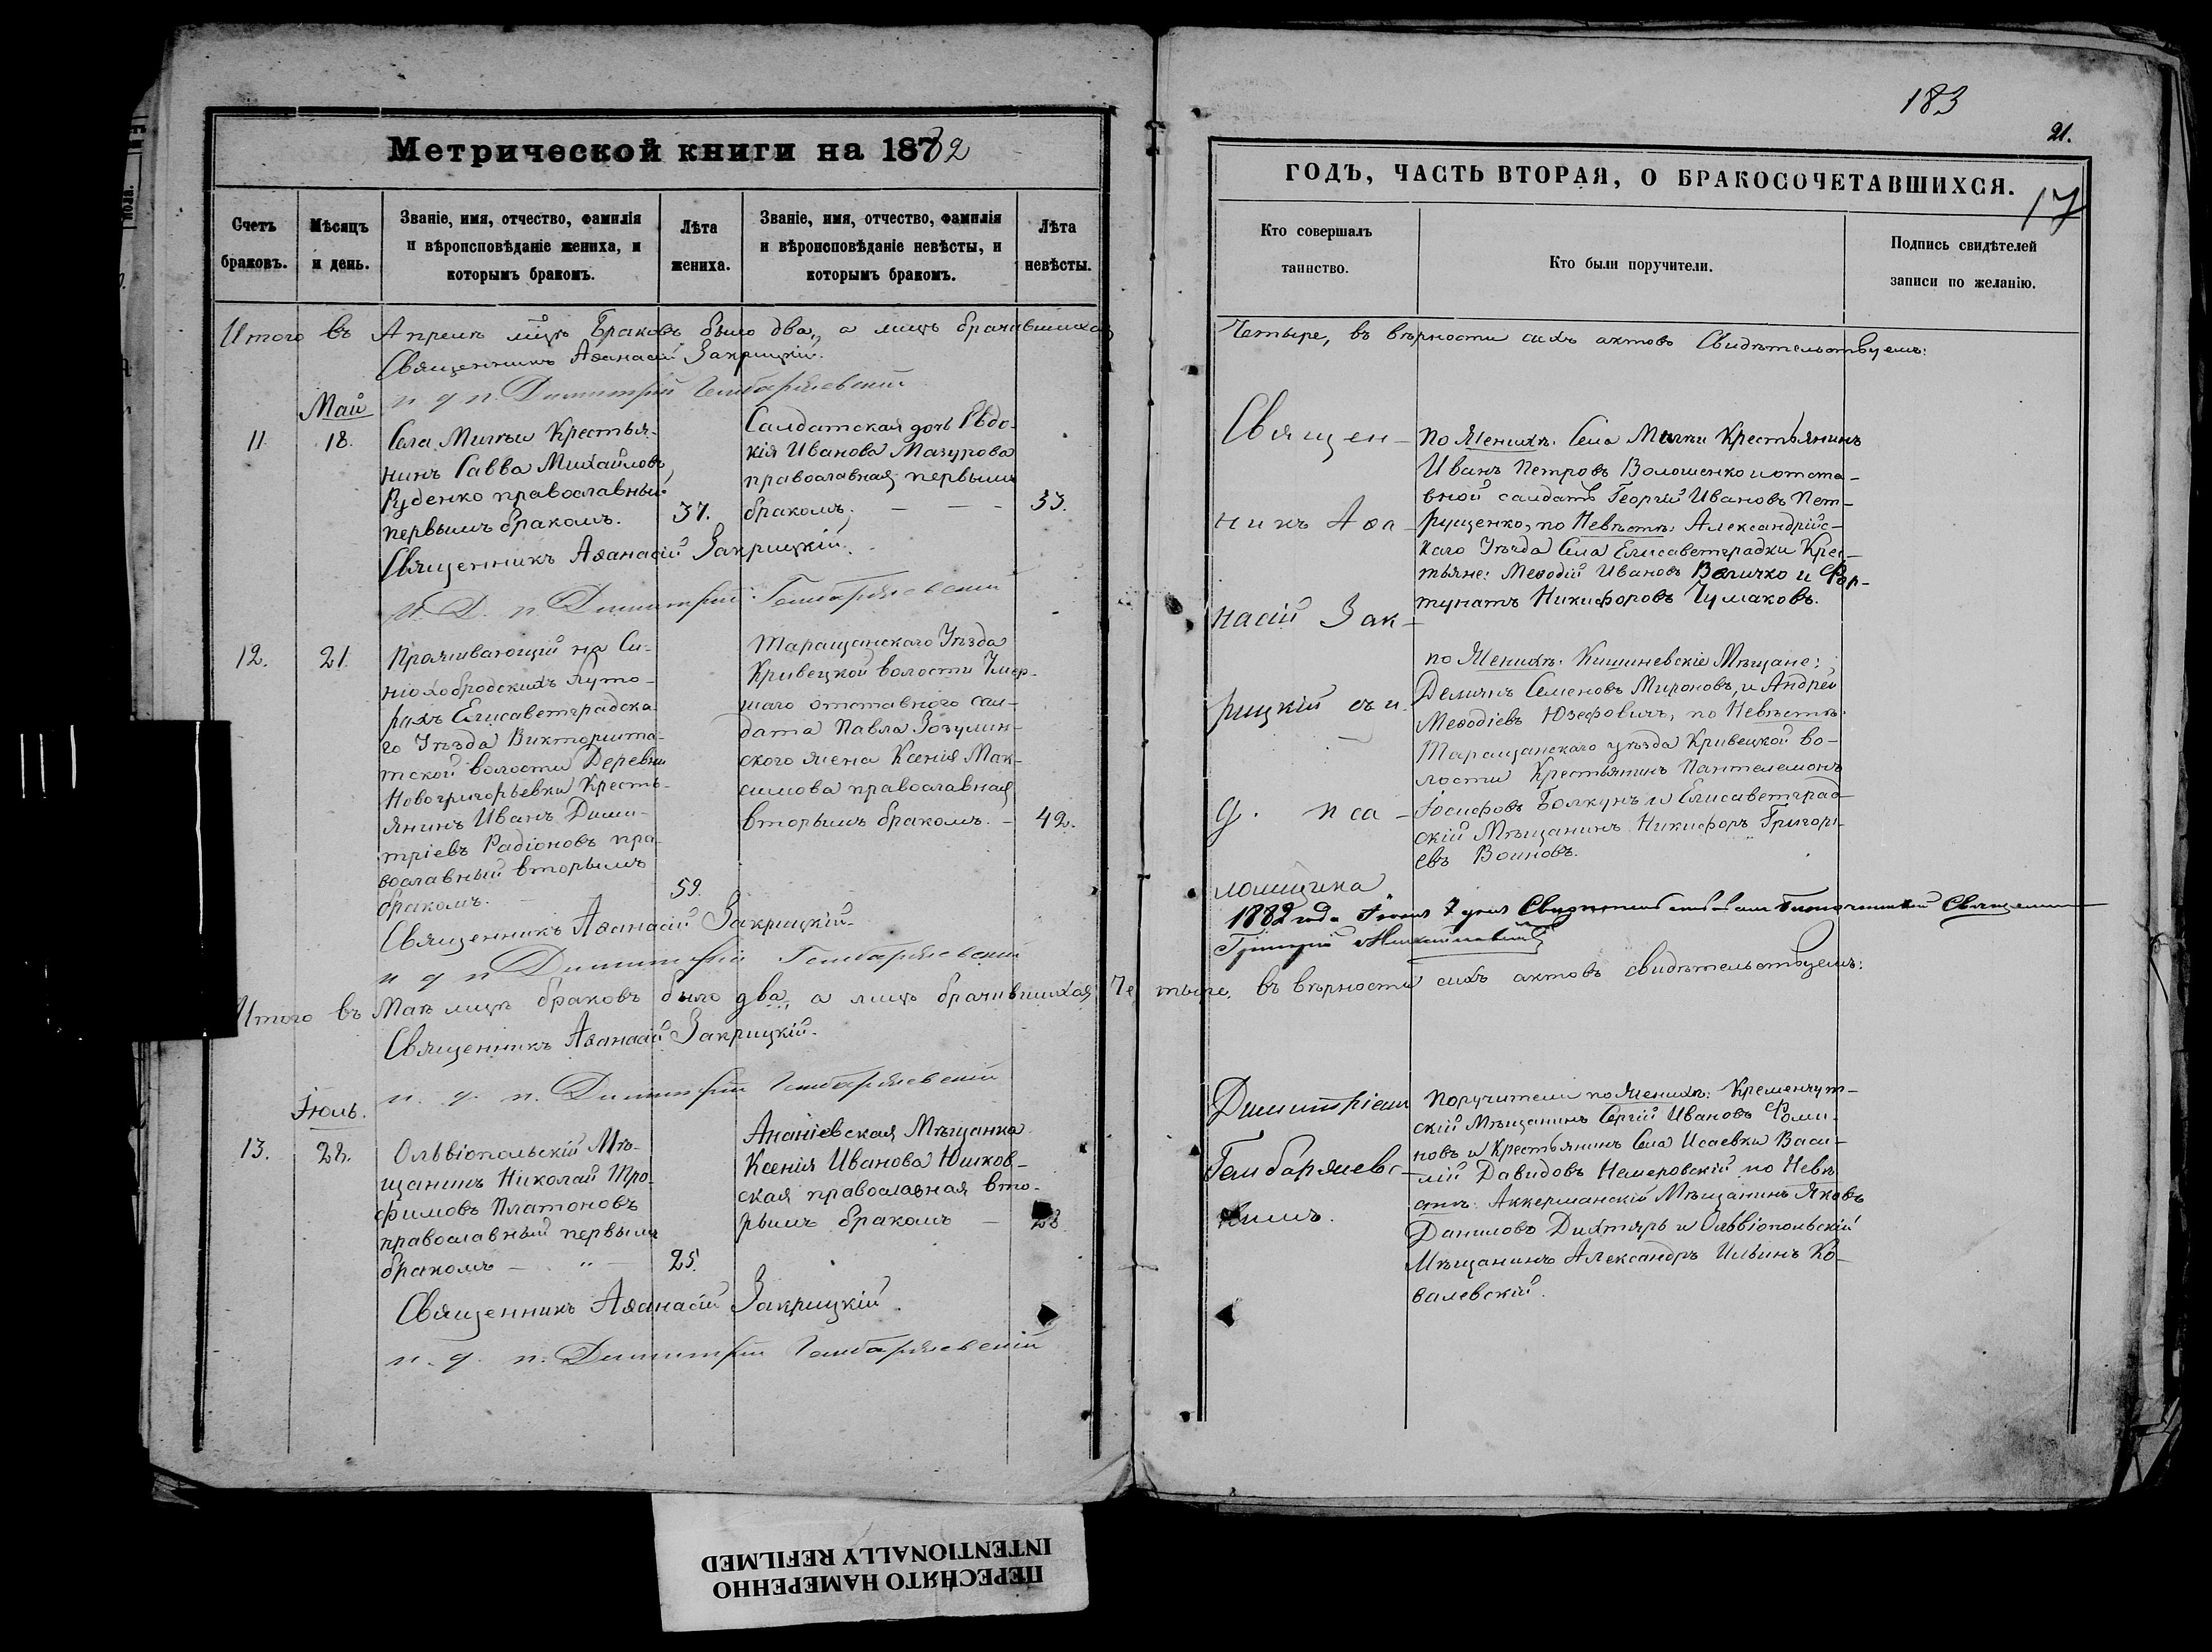 Метрической книги на 1882
Счетъ браковъ.
Мѣсяцъ и день.
Званіе, имя, отчество, фамилія
и вѣроисповѣданіе жениха, и
которымъ бракомъ.
Лѣта
жениха.
Званіе, имя, отчество, фамилія
и вѣроисповѣданіе невѣсты, и
которымъ бракомъ.
Лѣта
невѣсты.
Итого въ Апрелѣ м͠цѣ Браковъ было два, а лицъ брачившихся
Священникъ Аѳанасій Закрицкій.
и д п. Димитрій Гембаржевскій
Май
11.
18.
Села Мигѣи Крестья-
нинъ Савва Михайловъ
Руденко православный
первымъ бракомъ.
37.
Салдатская дочь Евдо-
кія Иванова Мазурова
православная первымъ
бракомъ. — — —
33.
Священникъ Аѳанасій Закрицкій.
И. Д. п. Димитрій Гембаржевскій
12.
21.
Проживающій на Си-
нюхобродскихъ Хуто-
рахъ Елисаветградска-
го Уѣзда Викторшта-
тской волости Деревни
Новогригорьевки Кресть-
янинъ Иванъ Дими-
тріевъ Радіоновъ пра-
вославный вторымъ
бракомъ.
59.
Таращанскаго Уѣзда
Кривецкой волости Умер-
шаго отставного сал-
дата Павла Зозулин-
ского жена Ксенія Мак-
симова православная
вторымъ бракомъ. —
42.
Священникъ Аѳанасій Закрицкій.
и д п Димитрій Гембаржевскій
Итого въ Маѣ мцѣ браковъ было два, а лицъ брачившихся Че
Священникъ Аѳанасій Закрицкій.
и. д. п. Димитрій Гембаржевскій
Іюль.
13.
28.
Ольвіопольскій Мѣ-
щанинъ Николай Тро-
фимовъ Платоновъ
православный первымъ
бракомъ — „ —
25.
Ананіевская Мѣщанка
Ксенія Иванова Юшков-
ская православная вто-
рымъ бракомъ —
28
Священникъ Аѳанасій Закрицкій.
и. д. п. Димитрій Гембаржевскій
183
21.
17
ГОДЪ, ЧАСТЬ ВТОРАЯ, О БРАКОСОЧЕТАВШИХСЯ.
Кто совершалъ
таинство.
Кто были поручители.
Подпись свидѣтелей
записи по желанію.
Четыре, въ вѣрности сихъ актовъ Свидѣтельствуемъ:
Священ-
никъ Аѳа-
насій Зак-
рицкій съ и.
д. пса-
ломщика
по Женихѣ: Села Мигѣи Крестьянинъ
Иванъ Петровъ Волошенко и отста-
вной салдатъ Георгій Ивановъ Пет-
рущенко, по Невѣстѣ: Александрійс-
каго Уѣзда Села Елисаветградки Крес-
тьяне: Меѳодій Ивановъ Величко и Фор-
тунатъ Никифоровъ Чумаковъ.
по Женихѣ: Кишиневскіе Мѣщане:
Демьянъ Семеновъ Мироновъ, и Андрей
Меѳодіевъ Юзефовичъ, по Невѣстѣ:
Таращанскаго уѣзда Кривецкой во-
лости Крестьянинъ Пантелемонъ
Іосифовъ Болкунъ и Елисаветград-
скій Мѣщанинъ Никифоръ Григорі-
евъ Воиновъ.
1882 года Іюня 7 дня Благочинный Священникъ
Григорій
тыре, въ вѣрности сихъ актовъ свидѣтельствуемъ:
Димитріемъ
Гембаржевс-
кимъ.
Поручители по Женихѣ: Кременчуг-
скій Мѣщанинъ Сергій Ивановъ Фоми-
новъ и Крестьянинъ Села Исаевки Васи-
лій Давидовъ Немеровскій по Невѣ
стѣ: Аккерманскій Мѣщанинъ Яковъ
Даниловъ Дихтярь и Ольвіопольскій
Мѣщанинъ Александръ Ильинъ Ко-
валевскій.
ПЕРЕСНЯТО НАМЕРЕННО
INTENTIONALLY REFILMED